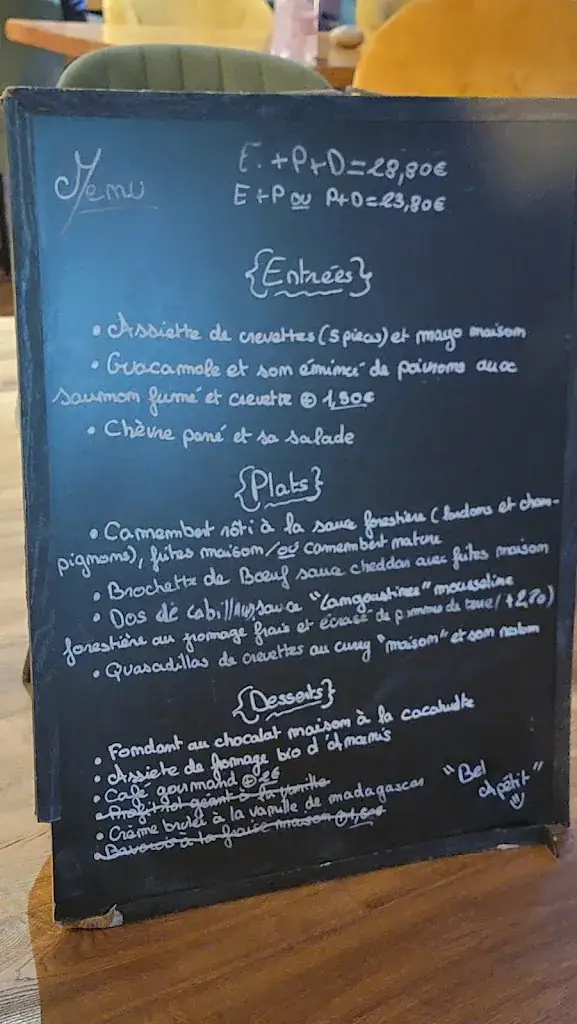 Menu
E.+P+D=28,80€
E+P ou P+D=23,80€
{Entrées}
• Assiette de crevettes (5 pieces) et mayo maison
• Guacamole et son émincé de poivrons avec
saumon fumé et crevette ⊕ 1,90€
• Chèvre pané et sa salade
{Plats}
• Camembert rôti à la sauce forestière (lardons et cham-
pignons), frites maison/ou camembert nature
• Brochette de Bœuf sauce cheddar avec frites maison
• Dos de cabillaud sauce "Langoustines" mousseline
forestière au fromage frais et écrasé de pommes de terre (+2,80)
• Quasadillas de crevettes au curry "maison" et son
{Desserts}
• Fondant au chocolat maison à la cacahuète
• Assiete de fromage bio d'
• Café gourmand ⊕ 2€
• géant à la vanille
• Crème brulée à la vanille de madagascar
• Bavarois à la fraise maison ⊕
"Bel
apétit"